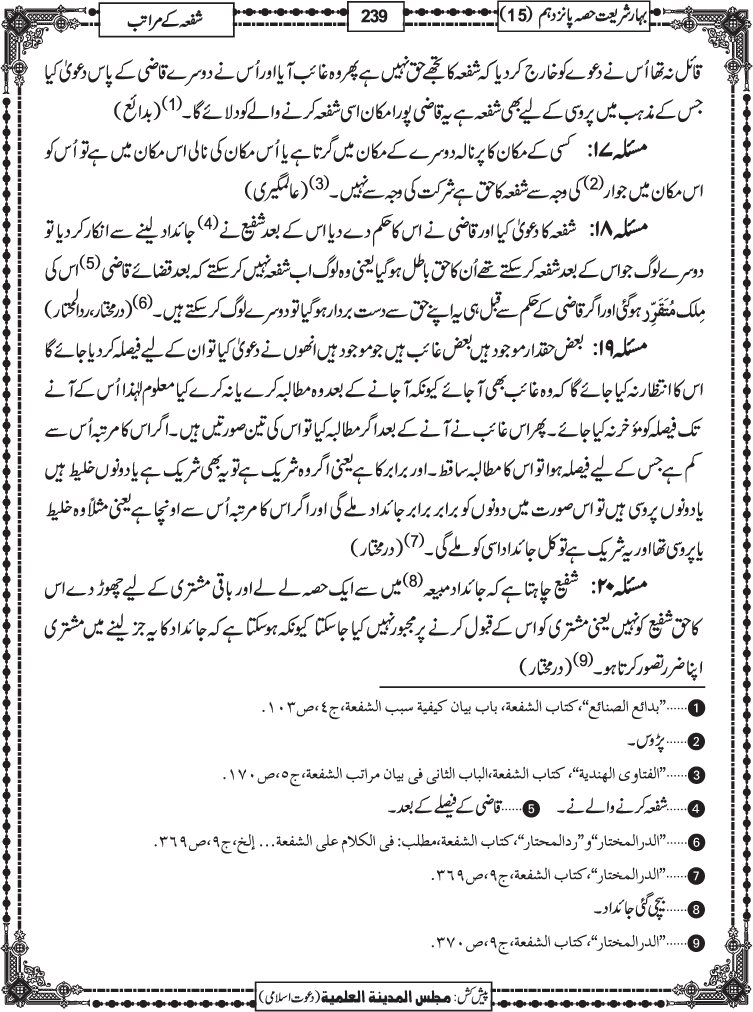 بہارِشریعت حصہ پانزدہم (15)
239
شفعہ کے مراتب
قائل نہ تھا اُس نے دعوے کو خارج کردیا کہ شفعہ کا تجھے حق نہیں ہے پھر وہ غائب آیا اور اُس نے دوسرے قاضی کے پاس دعویٰ کیا
جس کے مذہب میں پروسی کے لیے بھی شفعہ ہے یہ قاضی پورا مکان اسی شفعہ کرنے والے کو دلائے گا۔(1) (بدائع)
مسئلہ ۱۷: کسی کے مکان کا پرنالہ دوسرے کے مکان میں گرتا ہے یا اُس مکان کی نالی اس مکان میں ہے تو اُس کو
اس مکان میں جوار(2) کی وجہ سے شفعہ کا حق ہے شرکت کی وجہ سے نہیں۔(3) (عالمگیری)
مسئلہ ۱۸: شفعہ کا دعویٰ کیا اور قاضی نے اس کا حکم دے دیا اس کے بعد شفیع نے(4) جائداد لینے سے انکار کردیا تو
دوسرے لوگ جو اس کے بعد شفعہ کرسکتے تھے اُن کا حق باطل ہوگیا یعنی وہ لوگ اب شفعہ نہیں کرسکتے کہ بعد قضائے قاضی(5) اس کی
مِلک مُتَقَرِّر ہوگئی اور اگر قاضی کے حکم سے قبل ہی یہ اپنے حق سے دست بردار ہوگیا تو دوسرے لوگ کرسکتے ہیں۔(6) (درمختار، ردالمحتار)
مسئلہ ۱۹: بعض حقدار موجود ہیں بعض غائب ہیں جو موجود ہیں انھوں نے دعویٰ کیا تو ان کے لیے فیصلہ کردیا جائے گا
اس کا انتظار نہ کیا جائے گا کہ وہ غائب بھی آجائے کیونکہ آجانے کے بعد وہ مطالبہ کرے یا نہ کرے کیا معلوم لہٰذا اُس کے آنے
تک فیصلہ کو مؤخر نہ کیا جائے۔ پھر اس غائب نے آنے کے بعد اگر مطالبہ کیا تو اس کی تین صورتیں ہیں۔ اگر اس کا مرتبہ اُس سے
کم ہے جس کے لیے فیصلہ ہوا تو اس کا مطالبہ ساقط۔ اور برابر کا ہے یعنی اگر وہ شریک ہے تو یہ بھی شریک ہے یا دونوں خلیط ہیں
یا دونوں پروسی ہیں تو اس صورت میں دونوں کو برابر برابر جائداد ملے گی اور اگر اس کا مرتبہ اُس سے اونچا ہے یعنی مثلاً وہ خلیط
یا پروسی تھا اور یہ شریک ہے تو کل جائداد اسی کو ملے گی۔(7) (درمختار)
مسئلہ ۲۰: شفیع چاہتا ہے کہ جائداد مبیعہ(8) میں سے ایک حصہ لے لے اور باقی مشتری کے لیے چھوڑ دے اس
کا حق شفیع کو نہیں یعنی مشتری کو اس کے قبول کرنے پر مجبور نہیں کیا جاسکتا کیونکہ ہوسکتا ہے کہ جائداد کا یہ جز لینے میں مشتری
اپنا ضرر تصور کرتا ہو۔(9) (درمختار)
1 ......"بدائع الصنائع"، کتاب الشفعة، باب بیان کیفیة سبب الشفعة، ج٤، ص١٠٣.
2 ......پڑوس۔
3 ......"الفتاوی الهندیة"، کتاب الشفعة، الباب الثانی فی بیان مراتب الشفعة، ج٥، ص١٧٠.
4 ......شفعہ کرنے والے نے۔ 5 ......قاضی کے فیصلے کے بعد۔
6 ......"الدرالمختار" و "ردالمحتار"، کتاب الشفعة، مطلب: فی الکلام علی الشفعة... إلخ، ج٩، ص٣٦٩.
7 ......"الدرالمختار"، کتاب الشفعة، ج٩، ص٣٦٩.
8 ......بیچی گئی جائداد۔
9 ......"الدرالمختار"، کتاب الشفعة، ج٩، ص٣٧٠.
پیش کش: مجلس المدینة العلمیة (دعوت اسلامی)